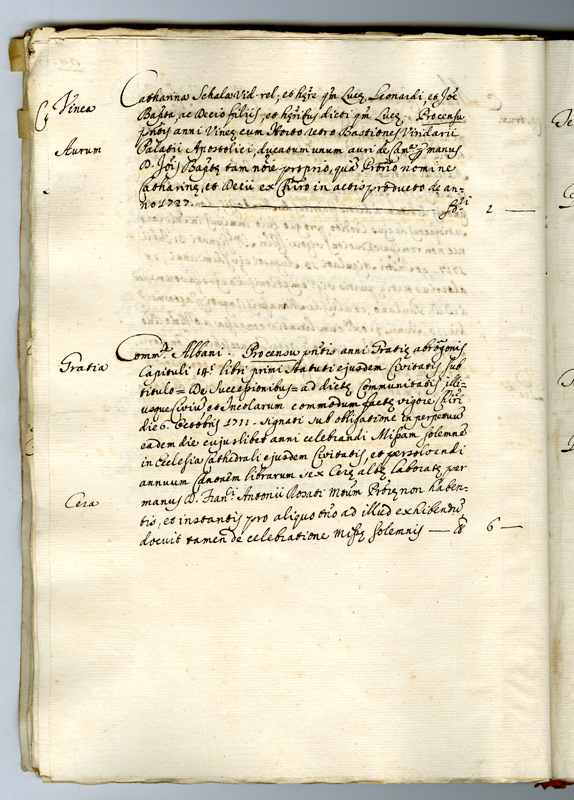 Vinea
Catharina Schala Vid. rel, et hęre qm Lucę Leonardi, et Joē
Baptą ac Decio filiis, et hęribus dicti qm Lucę. Procensu
pntis anni Vineę cum Horto retro Bastiones Viridarii
Aurum
Palatii Apostolici, ducatum unum auri de manus
D. Jois Baptę tam nōie proprio, quā nomine
Catharinę, et Decii ex Chiro in actis producto de an-
no 1727.
1
Gratia
Commtas Albani. Procensu pntis anni Gratię abrōgonis
Capituli 14i libri primi Statuti ejusdem Civitatis sub
titulo = De Successionibus = ad dictę Communitatis illi-
usque Civiū et Incolarum commodum factę vigore Chiri
die 6. Octobris 1711. signati sub obligatione in perpetuū
eadem die cujuslibet anni celebrandi Missam solemnē
in Ecclesia Cathedrali ejusdem Civitatis, et persolvendi
annuum Canonēm librarum sex Cerę albę laboratę per
Cera
manus D. Franci Antonii Rosati non haben-
tis, et instantis pro aliquo tnō ad illud exhibendū
docuit tamen de celebratione Missę solemnis
6